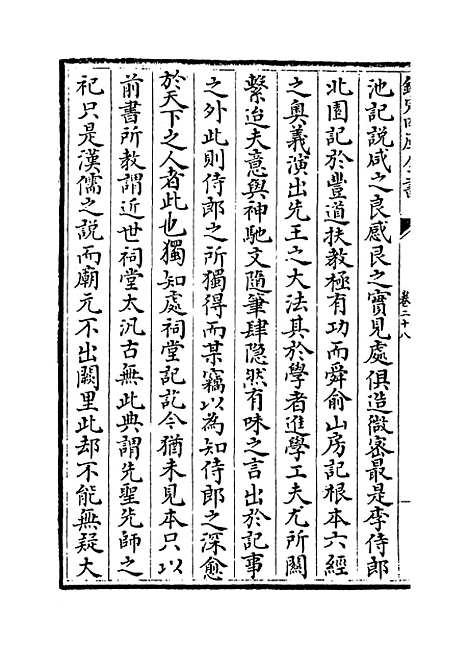 欽定四庫全書
卷二十八
池記說咸之良感艮之實見處俱造微密最是李侍郎
北園記於豐道扶教極有功而舜俞山房記根本六經
之奧義演出先王之大法其於學者進學工夫尤所關
繫迨夫意與神馳文隨筆肆隱然有味之言出於記事
之外此則侍郎之所獨得而某竊以為知侍郎之深愈
於天下之人者此也獨知處祠堂記訖今猶未見本只以
前書所教謂近世祠堂太汎古無此典謂先聖先師之
祀只是漢儒之說而廟元不出闕里此却不能無疑大